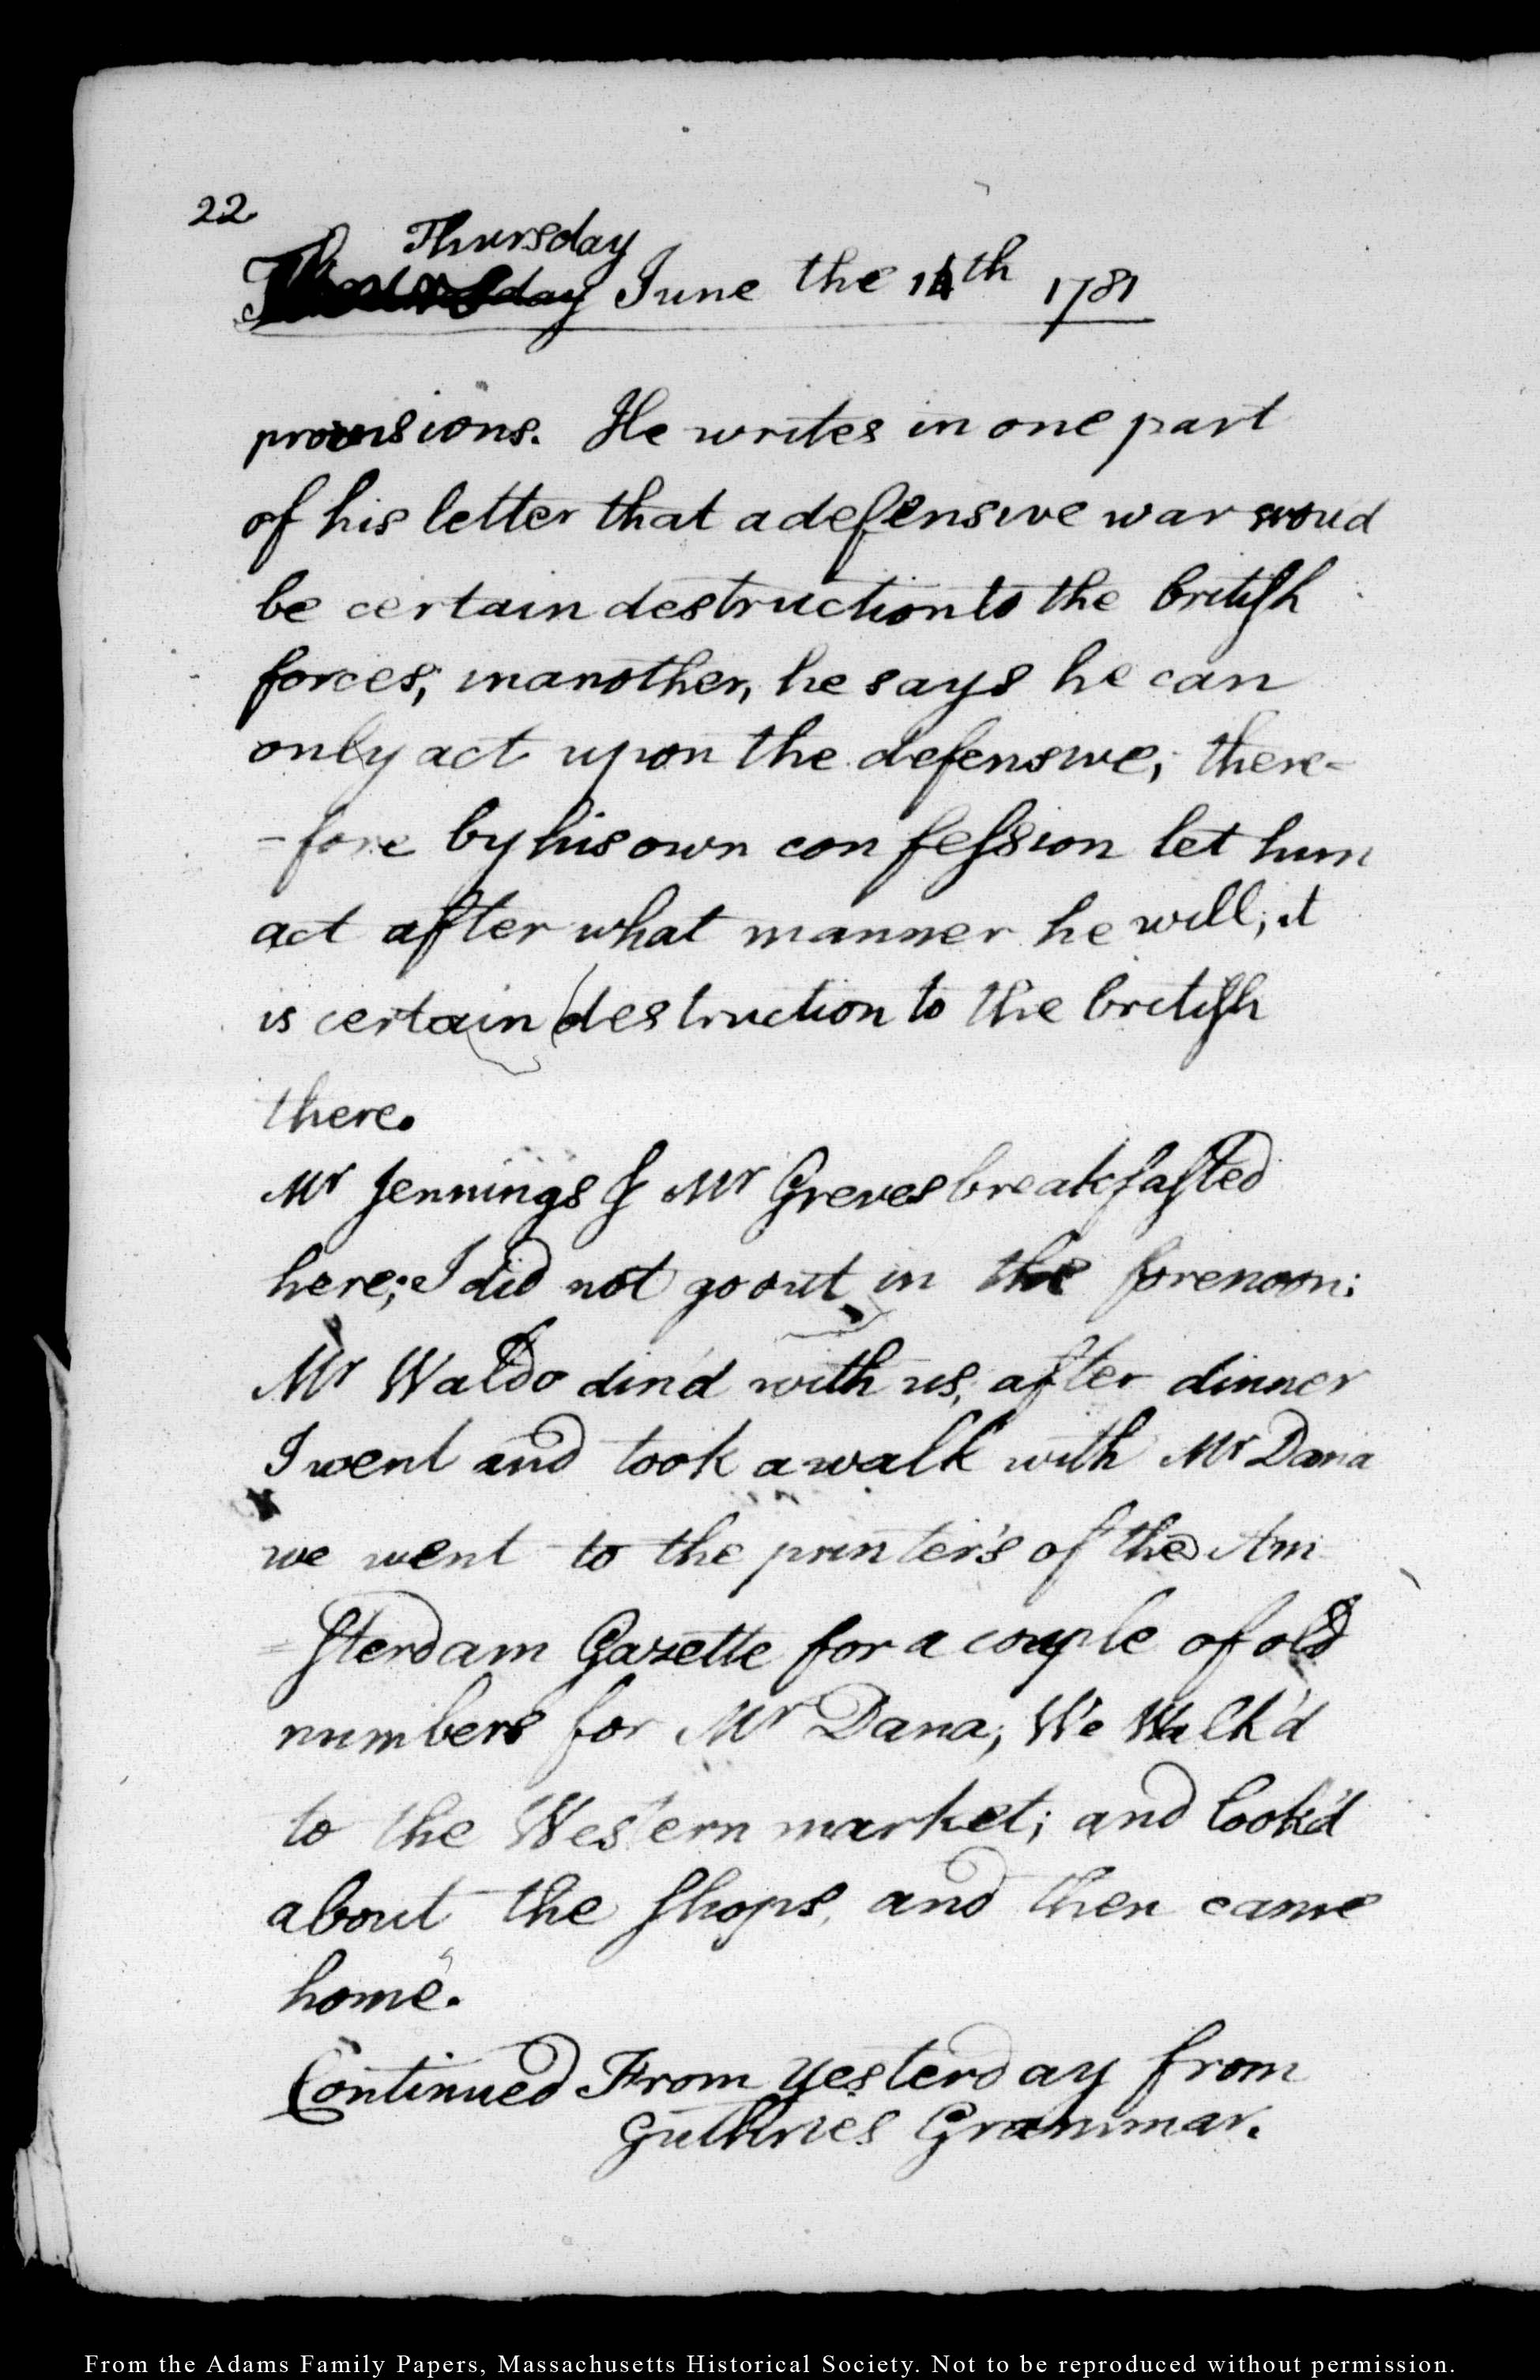 22
Thursday
Thursday June the 14th 1781
provisions. He writes in one part
of his letter that a defensive war woud
be certain destruction to the british
forces; in another, he says he can
only act upon the defensive; there=
=fore by his own confession let him
act after what manner he will; it
is certain destruction to the british
there.
Mr Jennings & Mr Greves breakfasted
here; I did not go out in the forenoon:
Mr Waldo din'd with us, after dinner
I went and took a walk with Mr Dana
we went to the printer's of the Am
=sterdam Gazette for a couple of old
numbers for Mr Dana; We Walk'd
to the Western market; and look'd
about the shops, and then came
home.
Continued From yesterday from
Guthries Grammar.
From the Adams Family Papers, Massachusetts Historical Society. Not to be reproduced without permission.